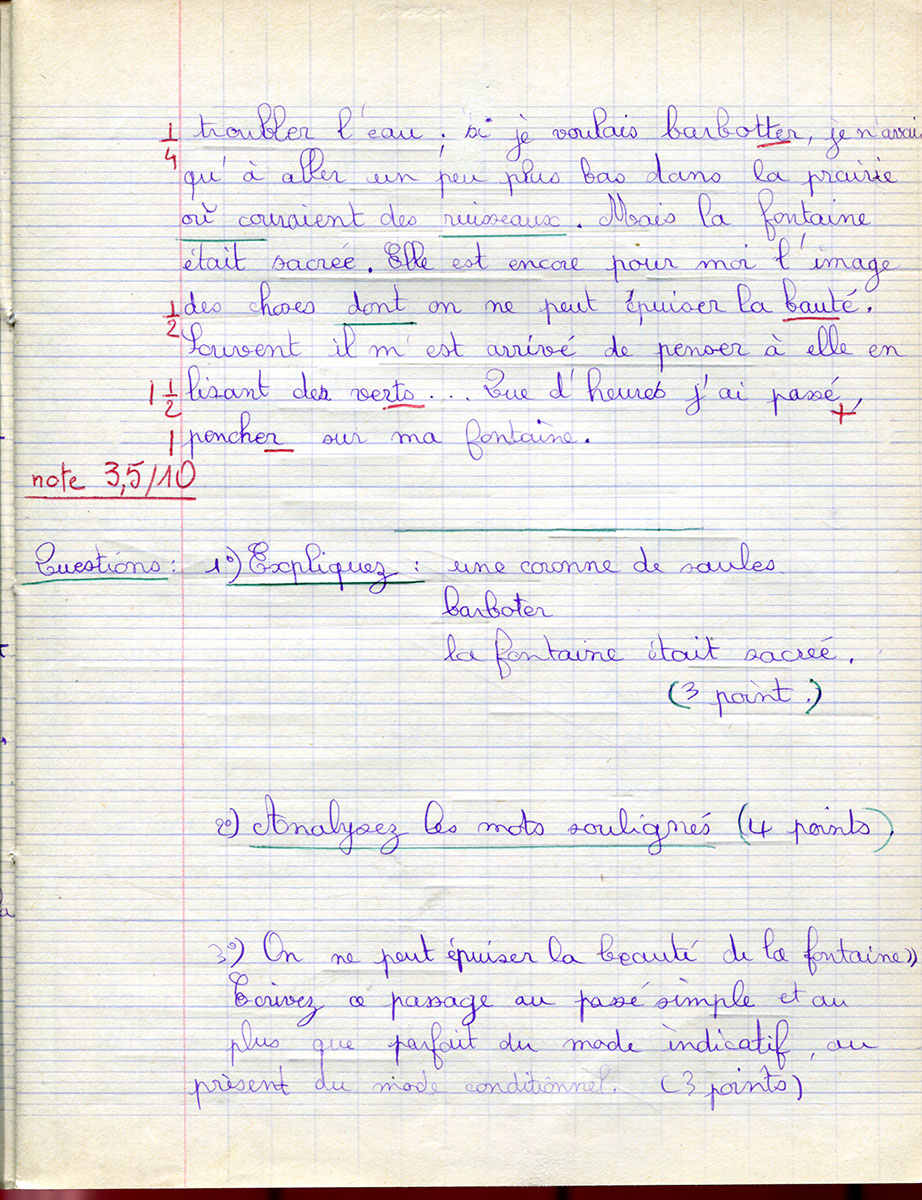 1/4 troubler l'eau ; si je voulais barbotter, je n'avai
qu'à aller un peu plus bas dans la prairie
où couraient des ruisseaux. Mais la fontaine
était sacrée. Elle est encore pour moi l'image
1/2 des choses dont on ne peut épuiser la bauté.
Souvent il m'est arrivé de penser à elle en
1 1/2 lisant des verts... Que d'heures j'ai passé,
1 pencher sur ma fontaine.
note 3,5/10
Questions : 1º) Expliquez : une coronne de saules
barboter
la fontaine était sacreé.
(3 point.)
2º) Analysez les mots soulignés (4 points)
3º) On ne peut épuiser la beauté de la fontaine»
Ecrivez ce passage au passé simple et au
plus que parfait du mode indicatif, au
présent du mode conditionnel. (3 points)